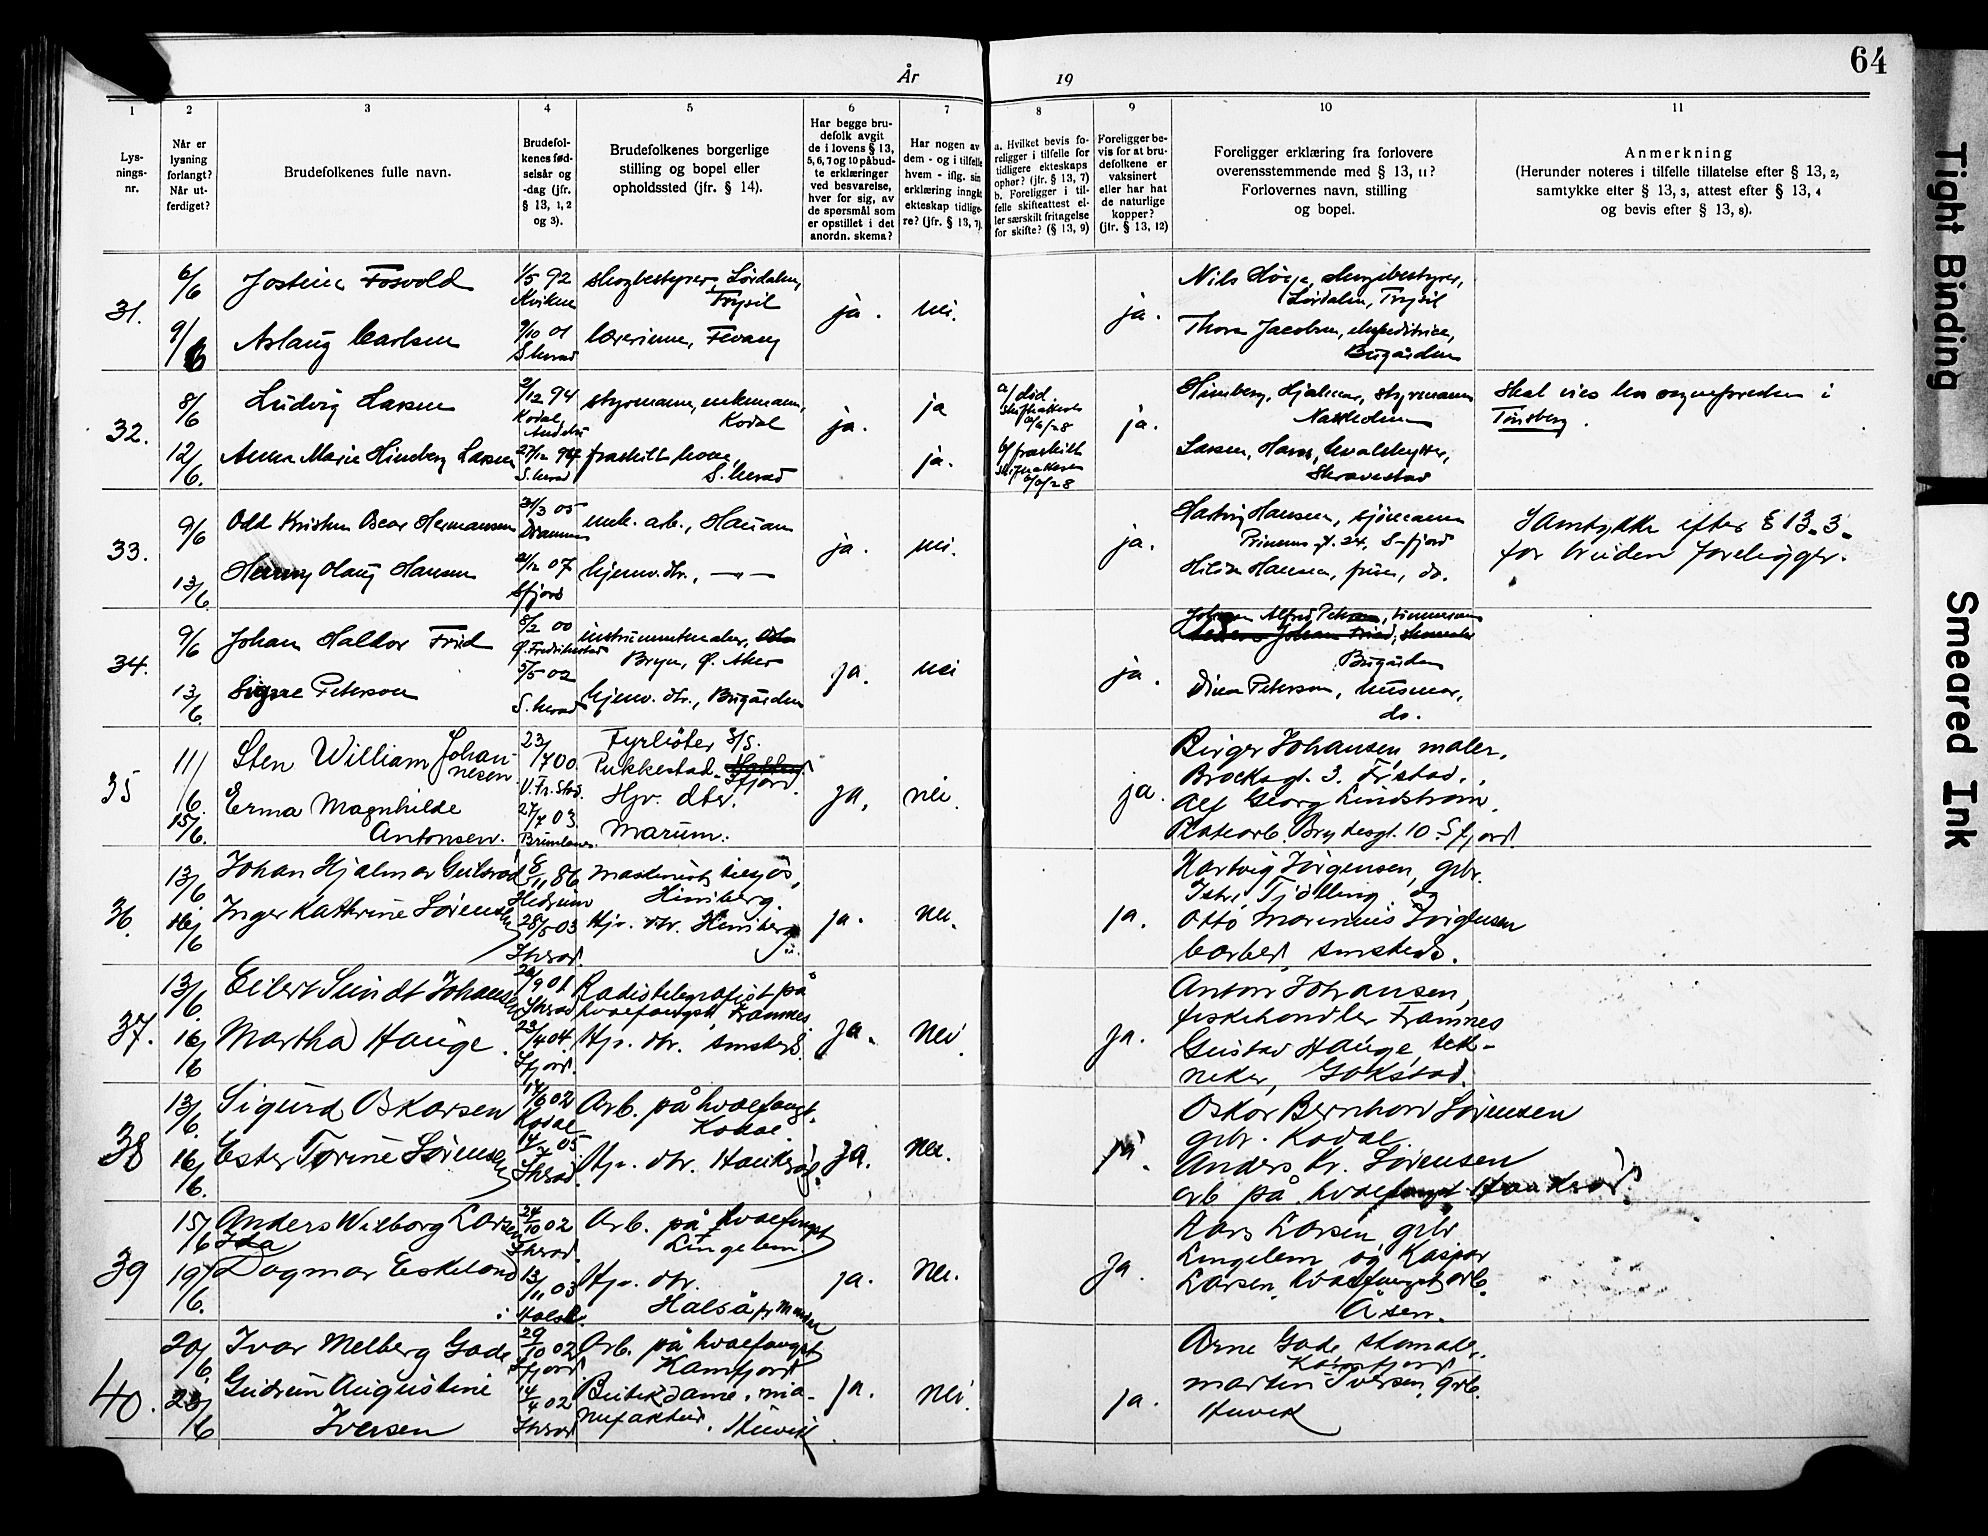 64
År 19
1 2 3 4 5 6 7 8 9 10 11
Lys-
nings-
nr.
Når er
lysning
forlangt?
Når ut-
ferdiget?
Brudefolkenes fulle navn.
Brudefol-
kenes fød-
selsår og
-dag (jfr.
§ 13, 1, 2
og 3).
Brudefolkenes borgerlige
stilling og bopel eller
opholdssted (jfr. § 14).
Har begge bru-
defolk avgit
de i lovens § 13,
5, 6, 7 og 10 påbud-
te erklæringer
ved besvarelse,
hver for sig, av
de spørsmål som
er opstillet i det
anordn. skema?
Har nogen av
dem - og i tilfelle
hvem - iflg. sin
erklæring inngått
ekteskap tidlige-
re? (jfr. § 13, 7).
a. Hvilket bevis fo-
religger i tilfelle for
tidligere ekteskaps
ophør? (jfr. § 13, 7)
b. Foreligger i til-
felle skifteattest el-
ler særskilt fritagelse
for skifte? (§ 13, 9)
Foreligger be-
vis for at bru-
defolkene er
vaksinert
eller har hat
de naturlige
kopper?
(jfr. § 13, 12)
Foreligger erklæring fra forlovere
overensstemmende med § 13, 11?
Forlovernes navn, stilling
og bopel.
Anmerkning
(Herunder noteres i tilfelle tillatelse efter § 13, 2,
samtykke efter § 13, 3, attest efter § 13, 4
og bevis efter § 13, 8).
31.
6/6
9/6
Jostein Fosvold
Aslaug Carlsen
1/5 92
Kvikne
9/10 01
S.herad
skogbestyrer, Lørdalen,
Trysil
lærerinne, Fevang
ja.
nei.
ja.
Nils Høye, skogbestyrer,
Lørdalen, Trysil
Thora Jacobsen, ekspeditrice,
Bugården
32.
8/6
12/6.
Ludvig Larsen
Anna Marie Himberg Larsen
2/12 94
Kodal,
Andebu
27/12 94
S.herad
styrmann, enkemann,
Kodal
fraskilt kone
S.herad
ja.
ja
ja.
a/ død
b/ fraskilt
ja.
Himberg, Hjalmar, styrmann
Larsen, Hans, hvalskytter,
Skravestad
Skal vies hos sogneforeden i
Tønsberg.
33.
9/6
13/6.
Odd Kristian Oscar Hermansen
Henny Olaug Hansen
21/3 05
Drammen
21/12 07
Sfjord
mek. arb., Hauan
hjemv. dtr., — " —
ja.
nei.
ja.
Hartvig Hansen, sjømann
Prinsens gt. 24, S-fjord
Hilda Hansen, frue, do.
Samtykke efter § 13-3-
for bruden foreligger.
34.
9/6
13/6.
Johan Haldor Frid
Signe Peterson
8/2 00
Ø. Fredrikstad
5/5 02
S.herad
instrumentmaker,
Bryn, Ø. Aker
hjemv. dtr., Bugården
ja.
nei
ja.
Johan Alfred Peterson, tømmermann
Bugården
Dina Peterson, husmor,
do.
35
11/6.
15/6.
Sten William Johan-
nesen.
Erma Magnhilde
Antonsen.
23/7 00
V. Fr. Stad.
27/7 03
Brunlanes.
Fyrbøter d/s.
Pukkestad. Sfjord.
Hjv. dter.
Marum.
ja,
nei.
ja.
Birger Johansen, maler,
Brocksgt. 3. Fr.stad.,
Alf Georg Lindstrøm,
Platearb. Brydesgt. 10. Sfjord.
36.
13/6.
16/6
Johan Hjalmar Gulsrød
Inger Kathrine Sørensen
8/11 86
Hedrum
28/5 03
Shrad.
maskinist tilsjøs,
Himberg.
Hjv. dtr. Himberg
ja.
nei.
ja.
Hartvig Jørgensen, grbr.
Istre, Tjølling og
Otto Marenius Jørgensen
barber, smsteds.
37.
13/6.
16/6
Eilert Sundt Johansen
Martha Hauge.
20/9 01
Shrad
23/4 04
Sfjord.
Radiotelegrafist på
hvalfangst, Framnes
Hjv. dtr. smsteds.
ja.
nei.
ja.
Anton Johansen,
fiskehandler Framnes
Gustav Hauge, tek-
niker, Gokstad.
38
13/6.
16/6.
Sigurd Oskarsen
Ester Torine Sørensen
14/6 02
Kodal
14/7 05
Shrad.
Arb. på hvalfangst.
Kodal.
Hjv. dtr. Haukerød.
ja.
nei.
ja.
Oskar Bernhard Sørensen
grbr. Kodal.
Anders Kr. Sørensen
arb på hvalfangst Haukerød.
39
15/6
19/6.
Anders Wilborg Larsen
Ida
Dagmar Eskeland
24/10 02
Shrad.
13/11 03
i Halse.
Arb. på hvalfangst
Lingelem
Hjv. dtr.
Halså pr. Mandal
ja.
nei.
ja.
Lars Larsen grbr
Lingelem og Kaspar
Larsen, hvalfangstarb.
Åsen.
40.
20/6
23/6
Ivar Melberg Gade
Gudrun Augustine
Iversen
29/10 02
Sfjord.
14/4 02
Shrad
Arb. på hvalfangst
Kamfjord
Butikdame, ma-
nufaktur. Huvik.
ja.
nei.
ja.
Arne Gade skomaker.
Kamfjord
Martin Iversen, grb.
Huvik
Tight Binding
Smeared Ink